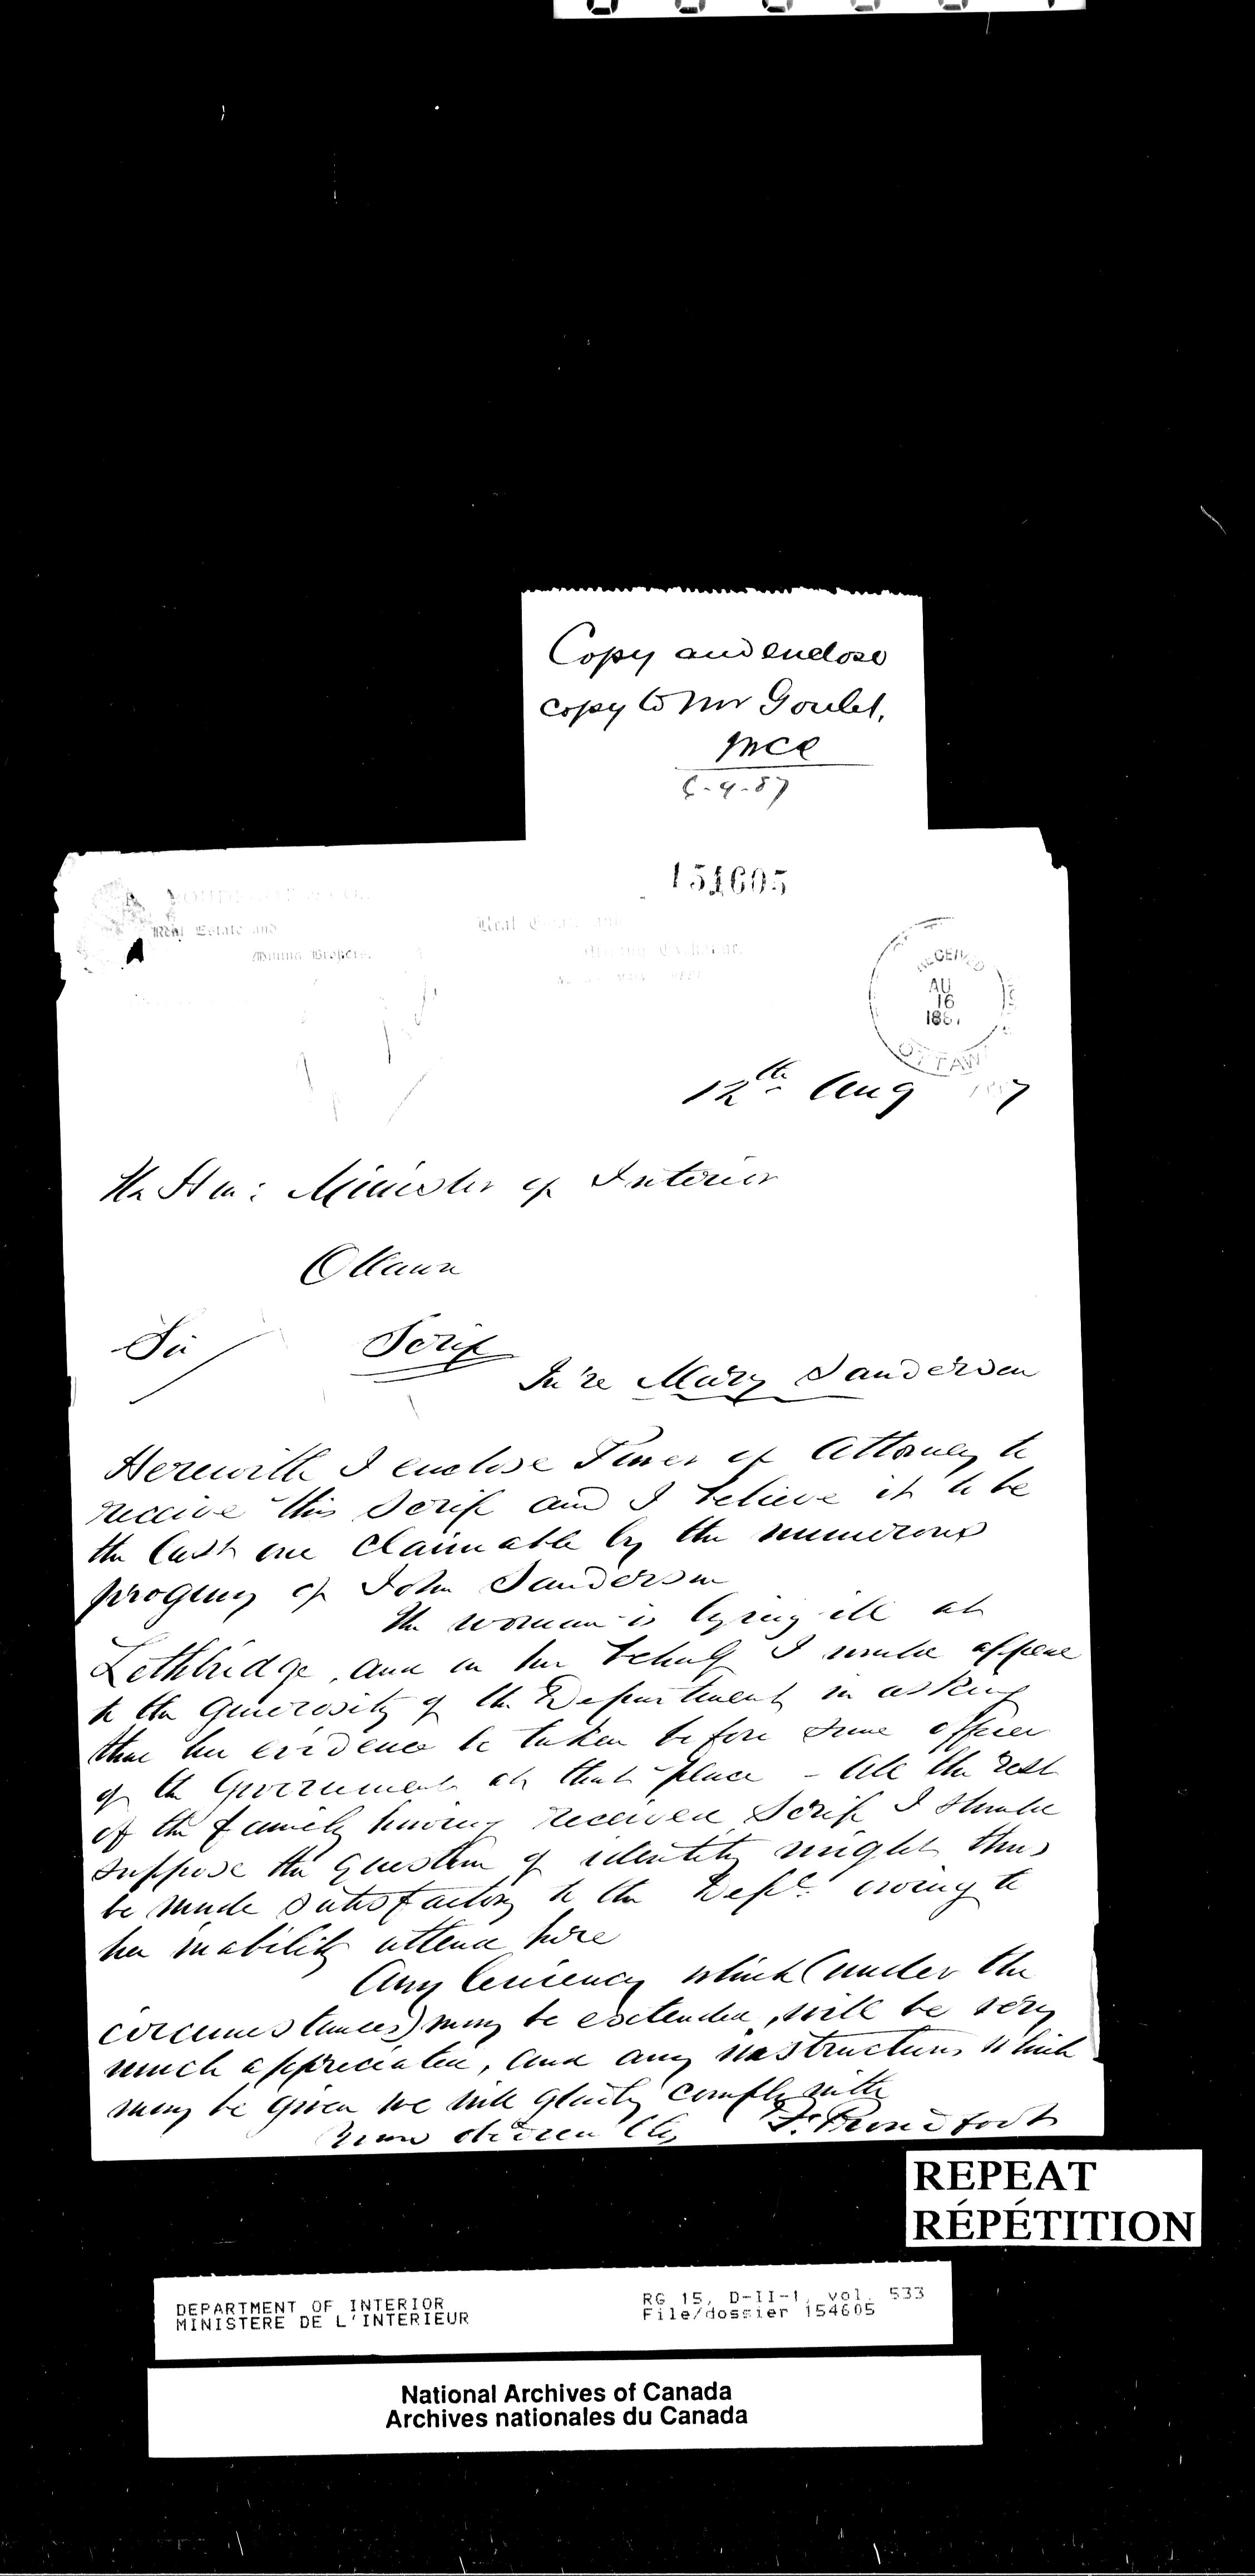 Copy and enclose
copy to Mr Goulet,
6-9-87
154605
Real Estate and
Mining Brokers.
Real Estate and
Mining Exchange
RECEIVED
AU
16
1887
OTTAWA
12th Aug 1887
The Hon: Minister of Interior
Ottawa
Sir
Scrip
In re Mary Sanderson
Herewith I enclose Power of Attorney to
receive this Scrip and I believe it to be
the last one claimable by the numerous
progeny of John Sanderson
The woman is lying ill at
Lethbridge, and in her behalf I would appeal
to the generosity of the Department in asking
that her evidence be taken before some officer
of the Government at that place - All the rest
of the family having received Scrip I should
suppose the question of identity might thus
be made satisfactory to the Dept. owing to
her inability attend here
Any leniency which (under the
circumstances) may be extended, will be very
much appreciated, and any instructions which
may be given we will gladly comply with
F. Proudfoot
REPEAT
RÉPÉTITION
DEPARTMENT OF INTERIOR
MINISTERE DE L'INTERIEUR
RG 15, D-II-1, vol. 533
File/dossier 154605
National Archives of Canada
Archives nationales du Canada